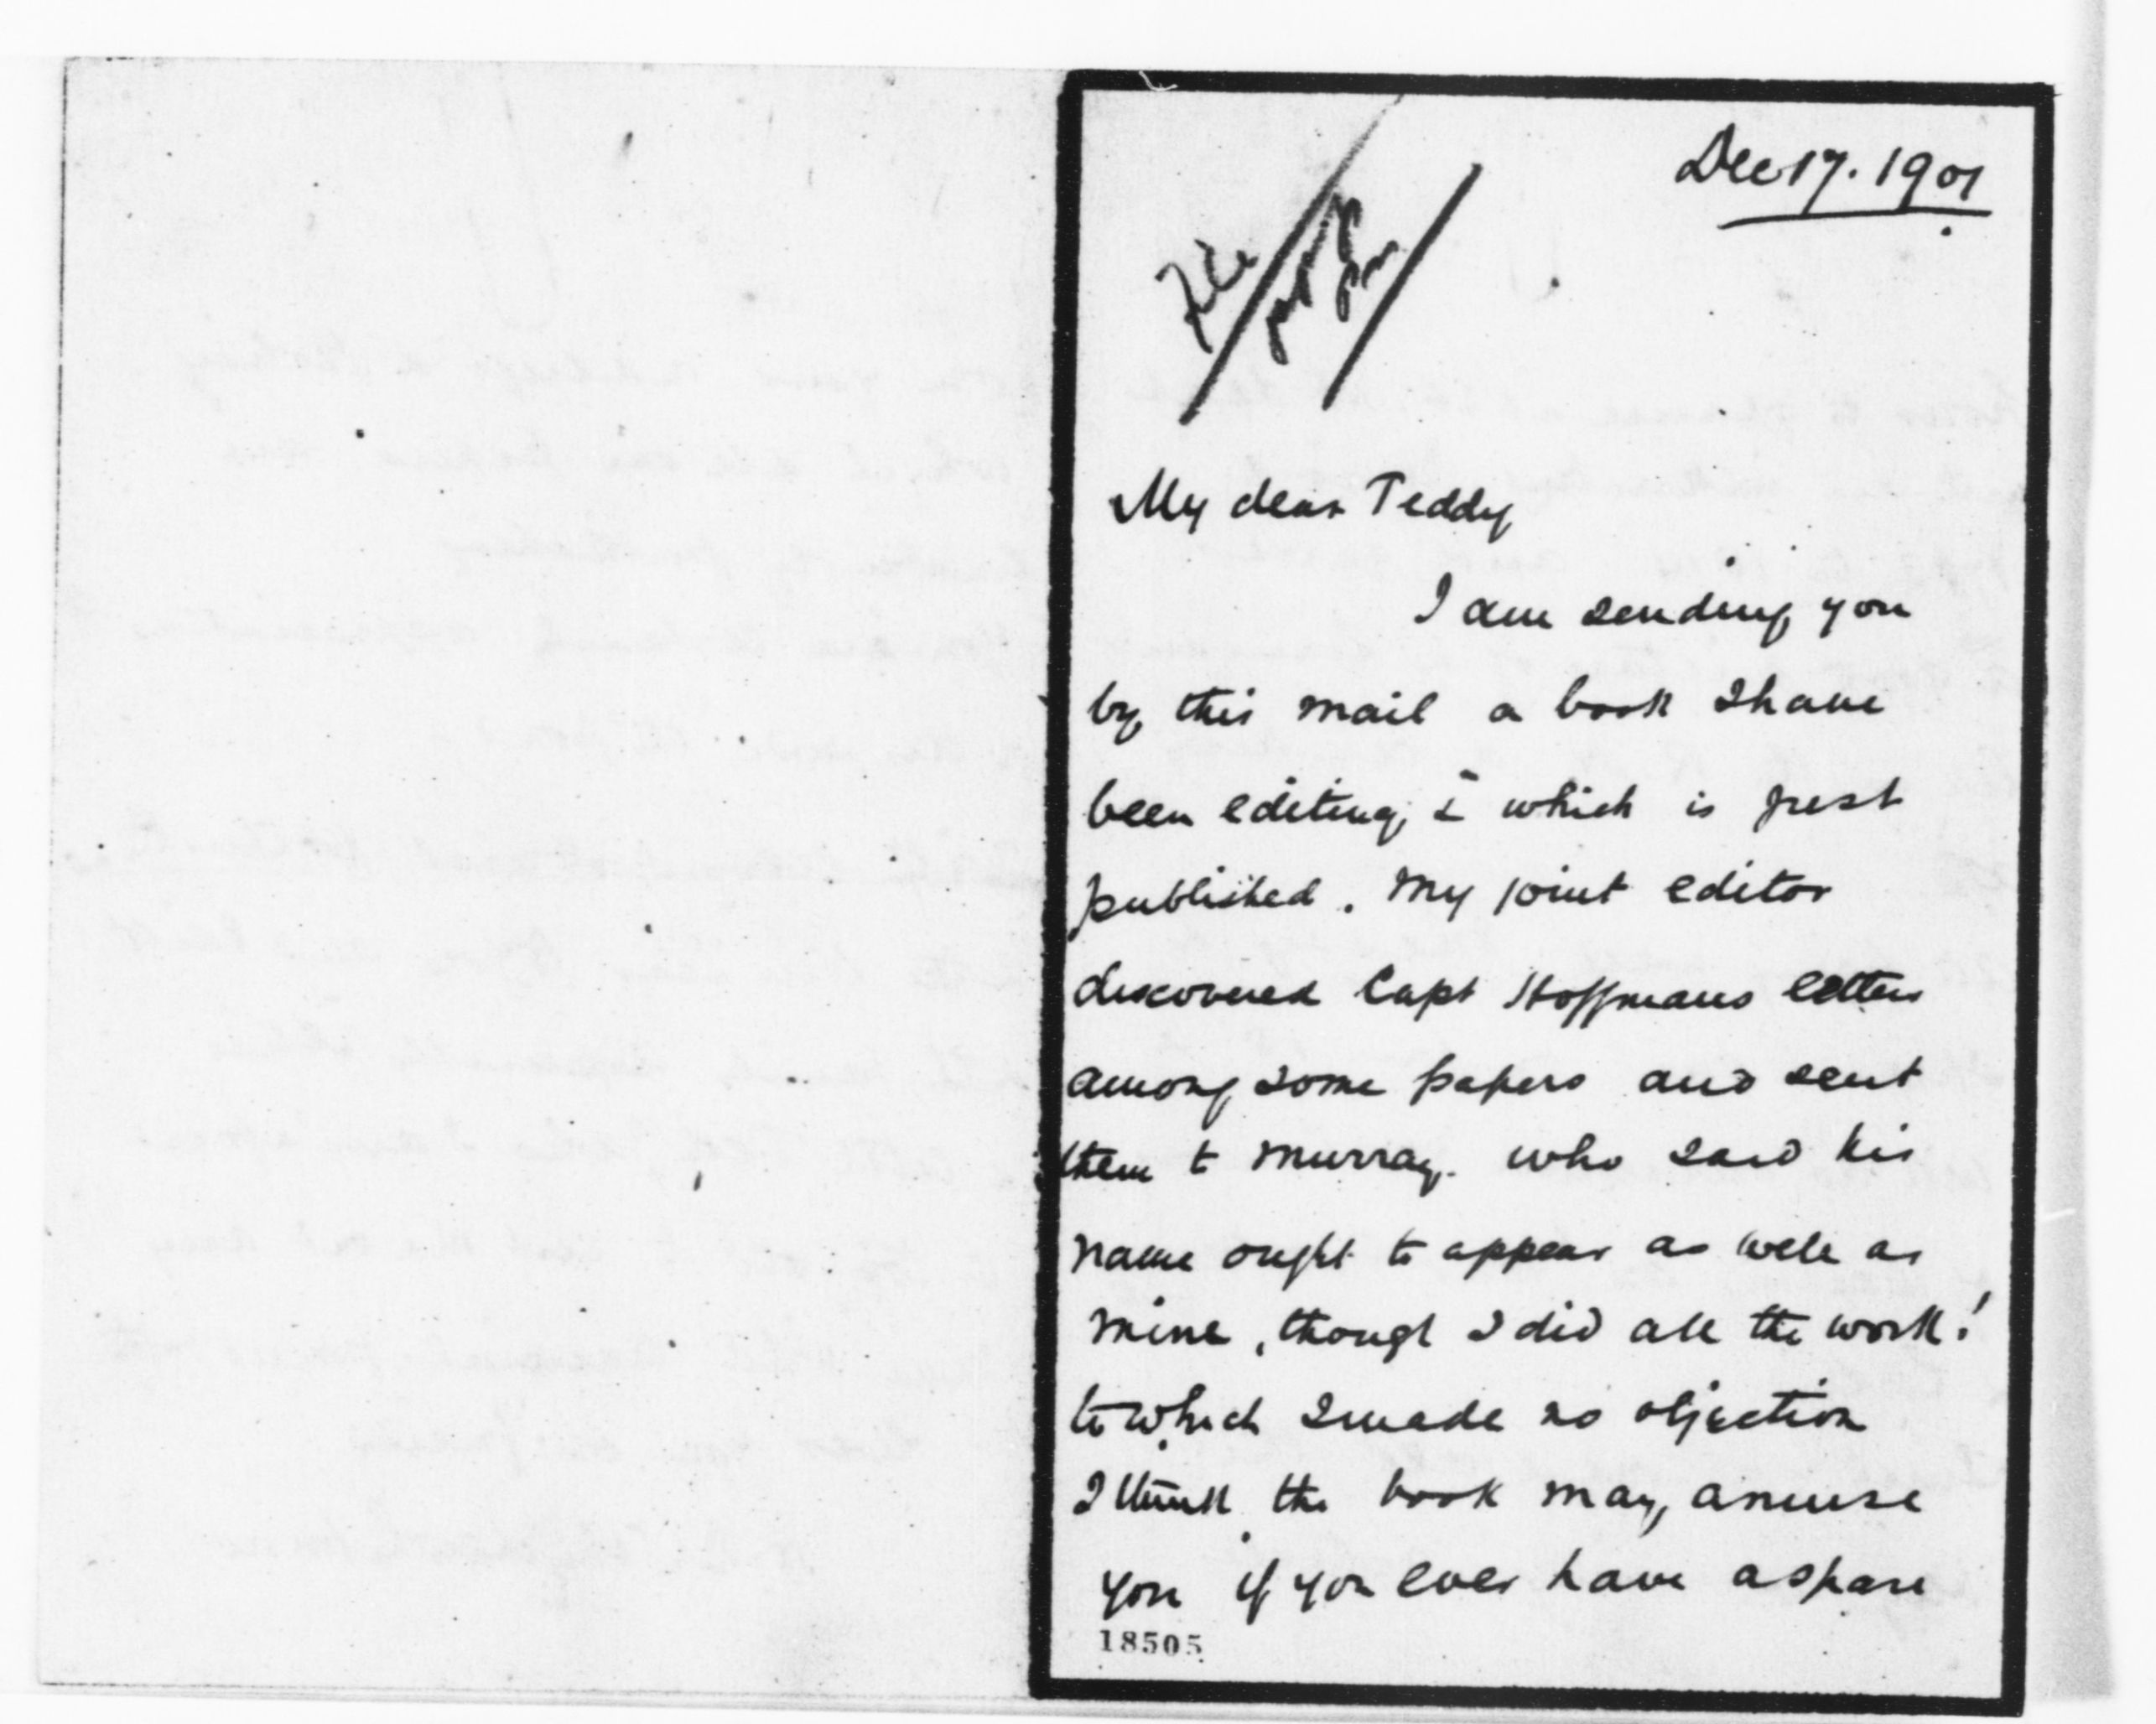 Dec 17. 1901
File
My dear Teddy
I am sending you
by this mail a book I have
been editing, & which is just
published. My joint editor
discovered Capt Hoffmans letters
among some papers and sent
them to Murray. who said his
name ought to appear as well as
mine, though I did all the work!
to which I made no objection
I think the book may amuse
you if you ever have a spare
18505